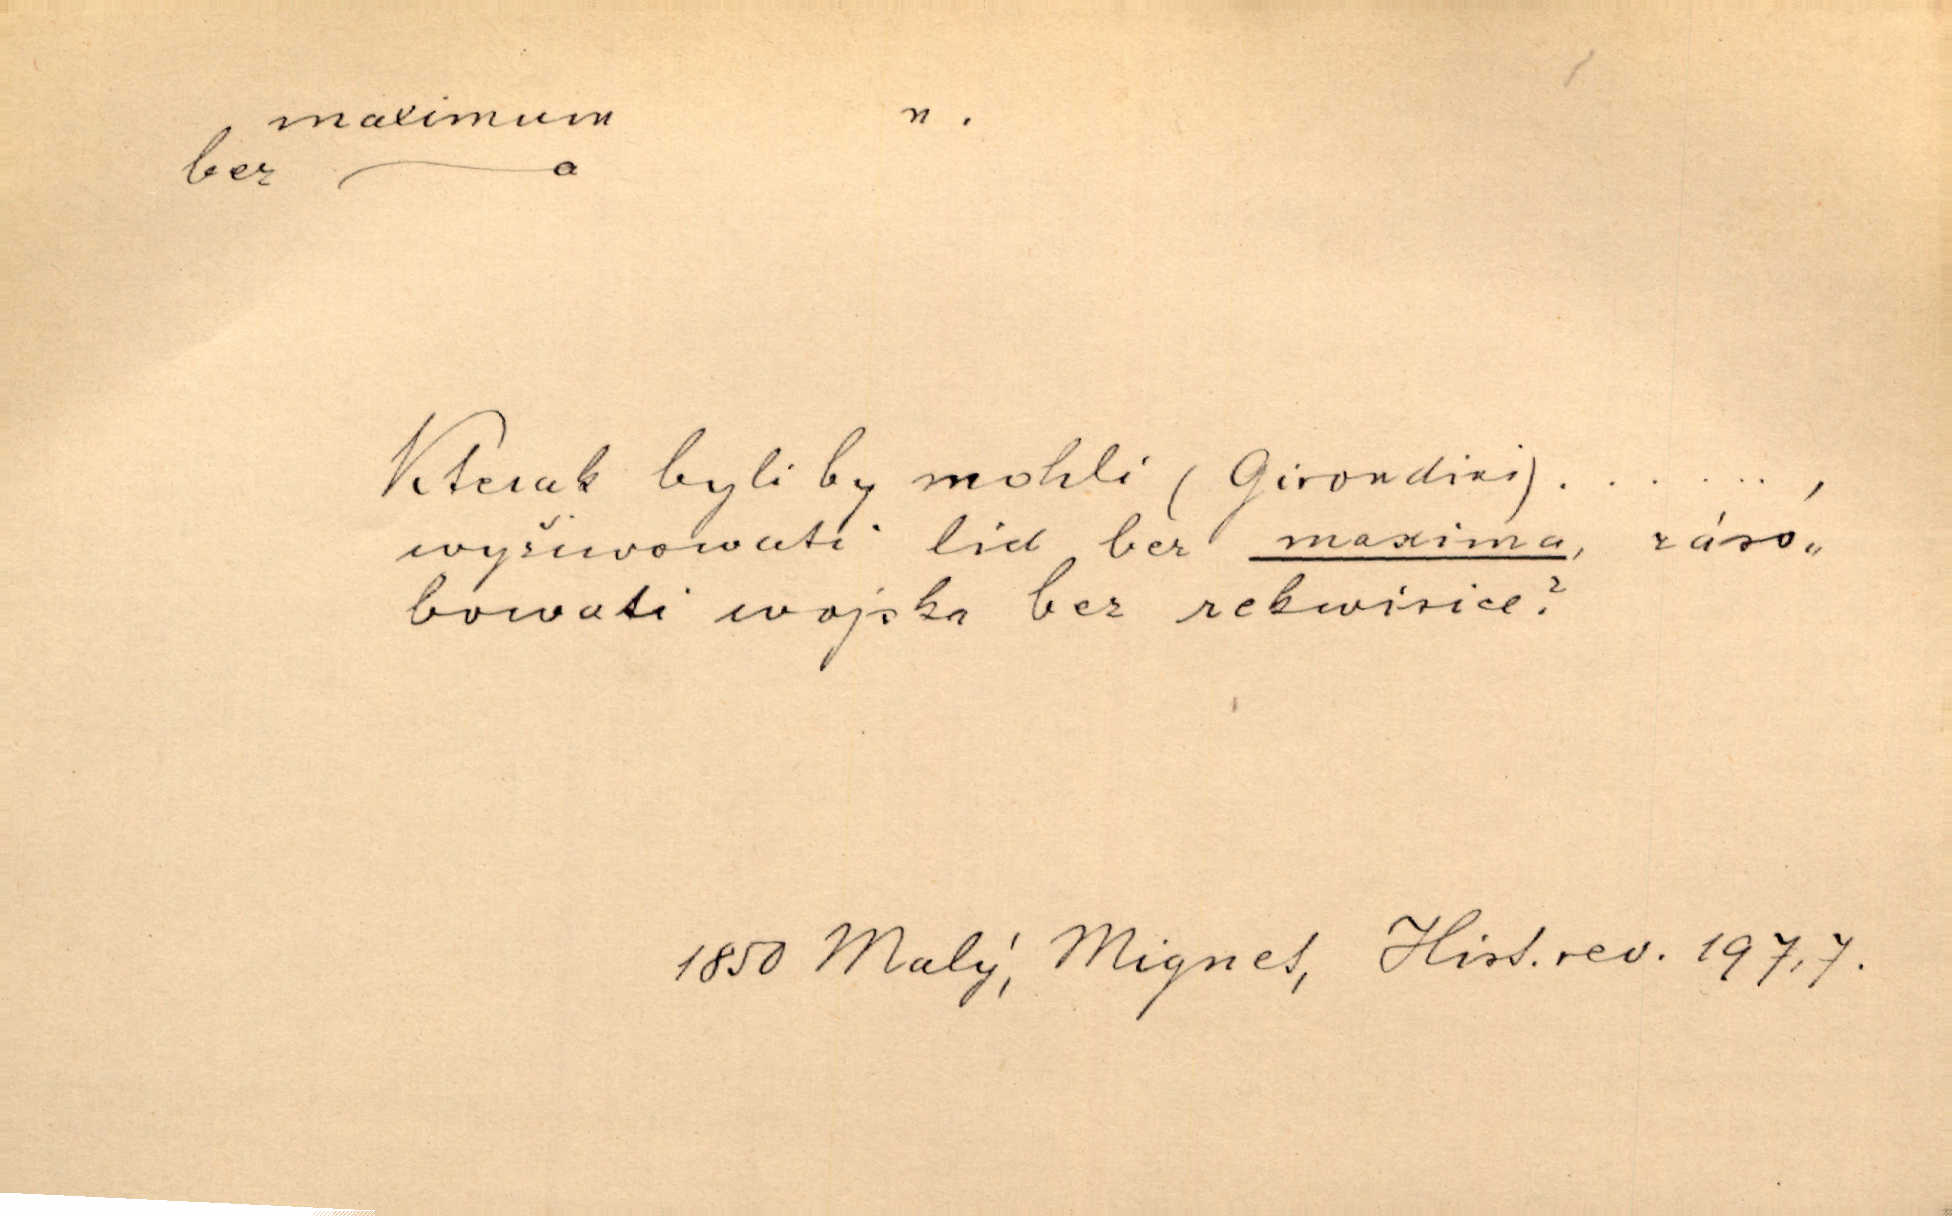 maximum n.
bez ———a
Kterak byli by mohli (Girondini). . . . . . ,
wyžiwowati lid bez maxima, záso„
bowati wojska bez rekwisice?
1850 Malý, Mignet, Hist. rev. 197,7.